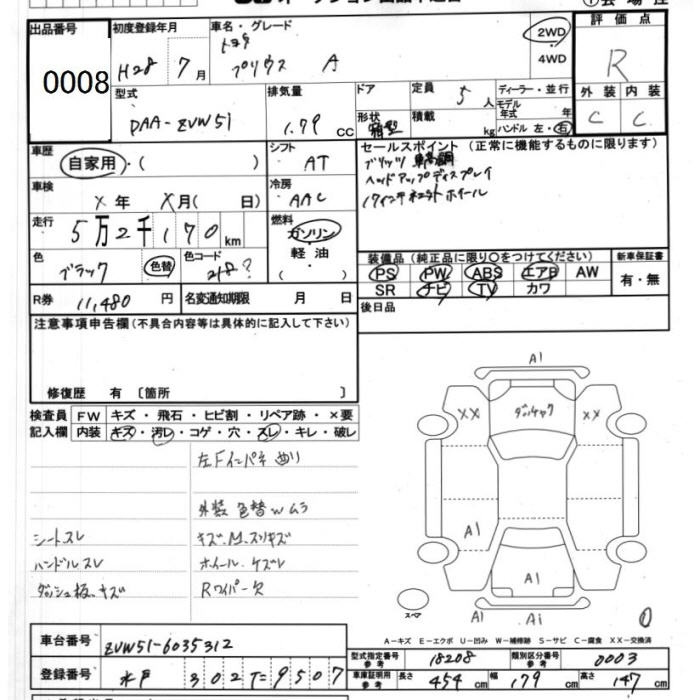 出品番号
0008
初度登録年月
H28 7月
車名・グレード
トヨタ
プリウス A
2WD
4WD
評価点
R
外装 内装
C C
型式
DAA-ZVW51
排気量
1.79 CC
ドア
形状
箱型
定員
5人
積載
kg
ディーラー・並行
モデル年式 年
ハンドル 左・右
車歴
自家用・( )
シフト
AT
車検
X年 X月( 日)
冷房
AAC
走行
5万2千170km
燃料
ガソリン・
軽油・
( )
色
ブラック
色替
色コード
218?
R券
11,480円
名変通知期限 月 日
セールスポイント (正常に機能するものに限ります)
ヘッドアップディスプレイ
17インチ ホイール
装備品(純正品に限り○をつけてください)
PS PW ABS エアB AW
SR ナビ TV カワ
新車保証書
有・無
後日品
注意事項申告欄(不具合内容等は具体的に記入して下さい)
修復歴 有〔箇所 〕
検査員記入欄
FW キズ・飛石・ヒビ割・リペア跡・×要
内装 キズ・汚レ・コゲ・穴・スレ・キレ・破レ
左Fインパネ 凹リ
外装 色替wムラ
シートスレ
キズM.スリキズ
ハンドルスレ
ホイール ケズレ
ダッシュ板.キズ
Rワイパー欠
A1
XX
XX
A1
A1
A1
A1
スペア
0
A-キズ E-エクボ U-凹み W-補修跡 S-サビ C-腐食 XX-交換済
車台番号
ZVW51-6035312
登録番号
水戸 302 て 9507
型式指定番号
参考
18208
類別区分番号
参考
0003
車庫証明用
参考
長さ 454cm
幅 179cm
高さ 147cm